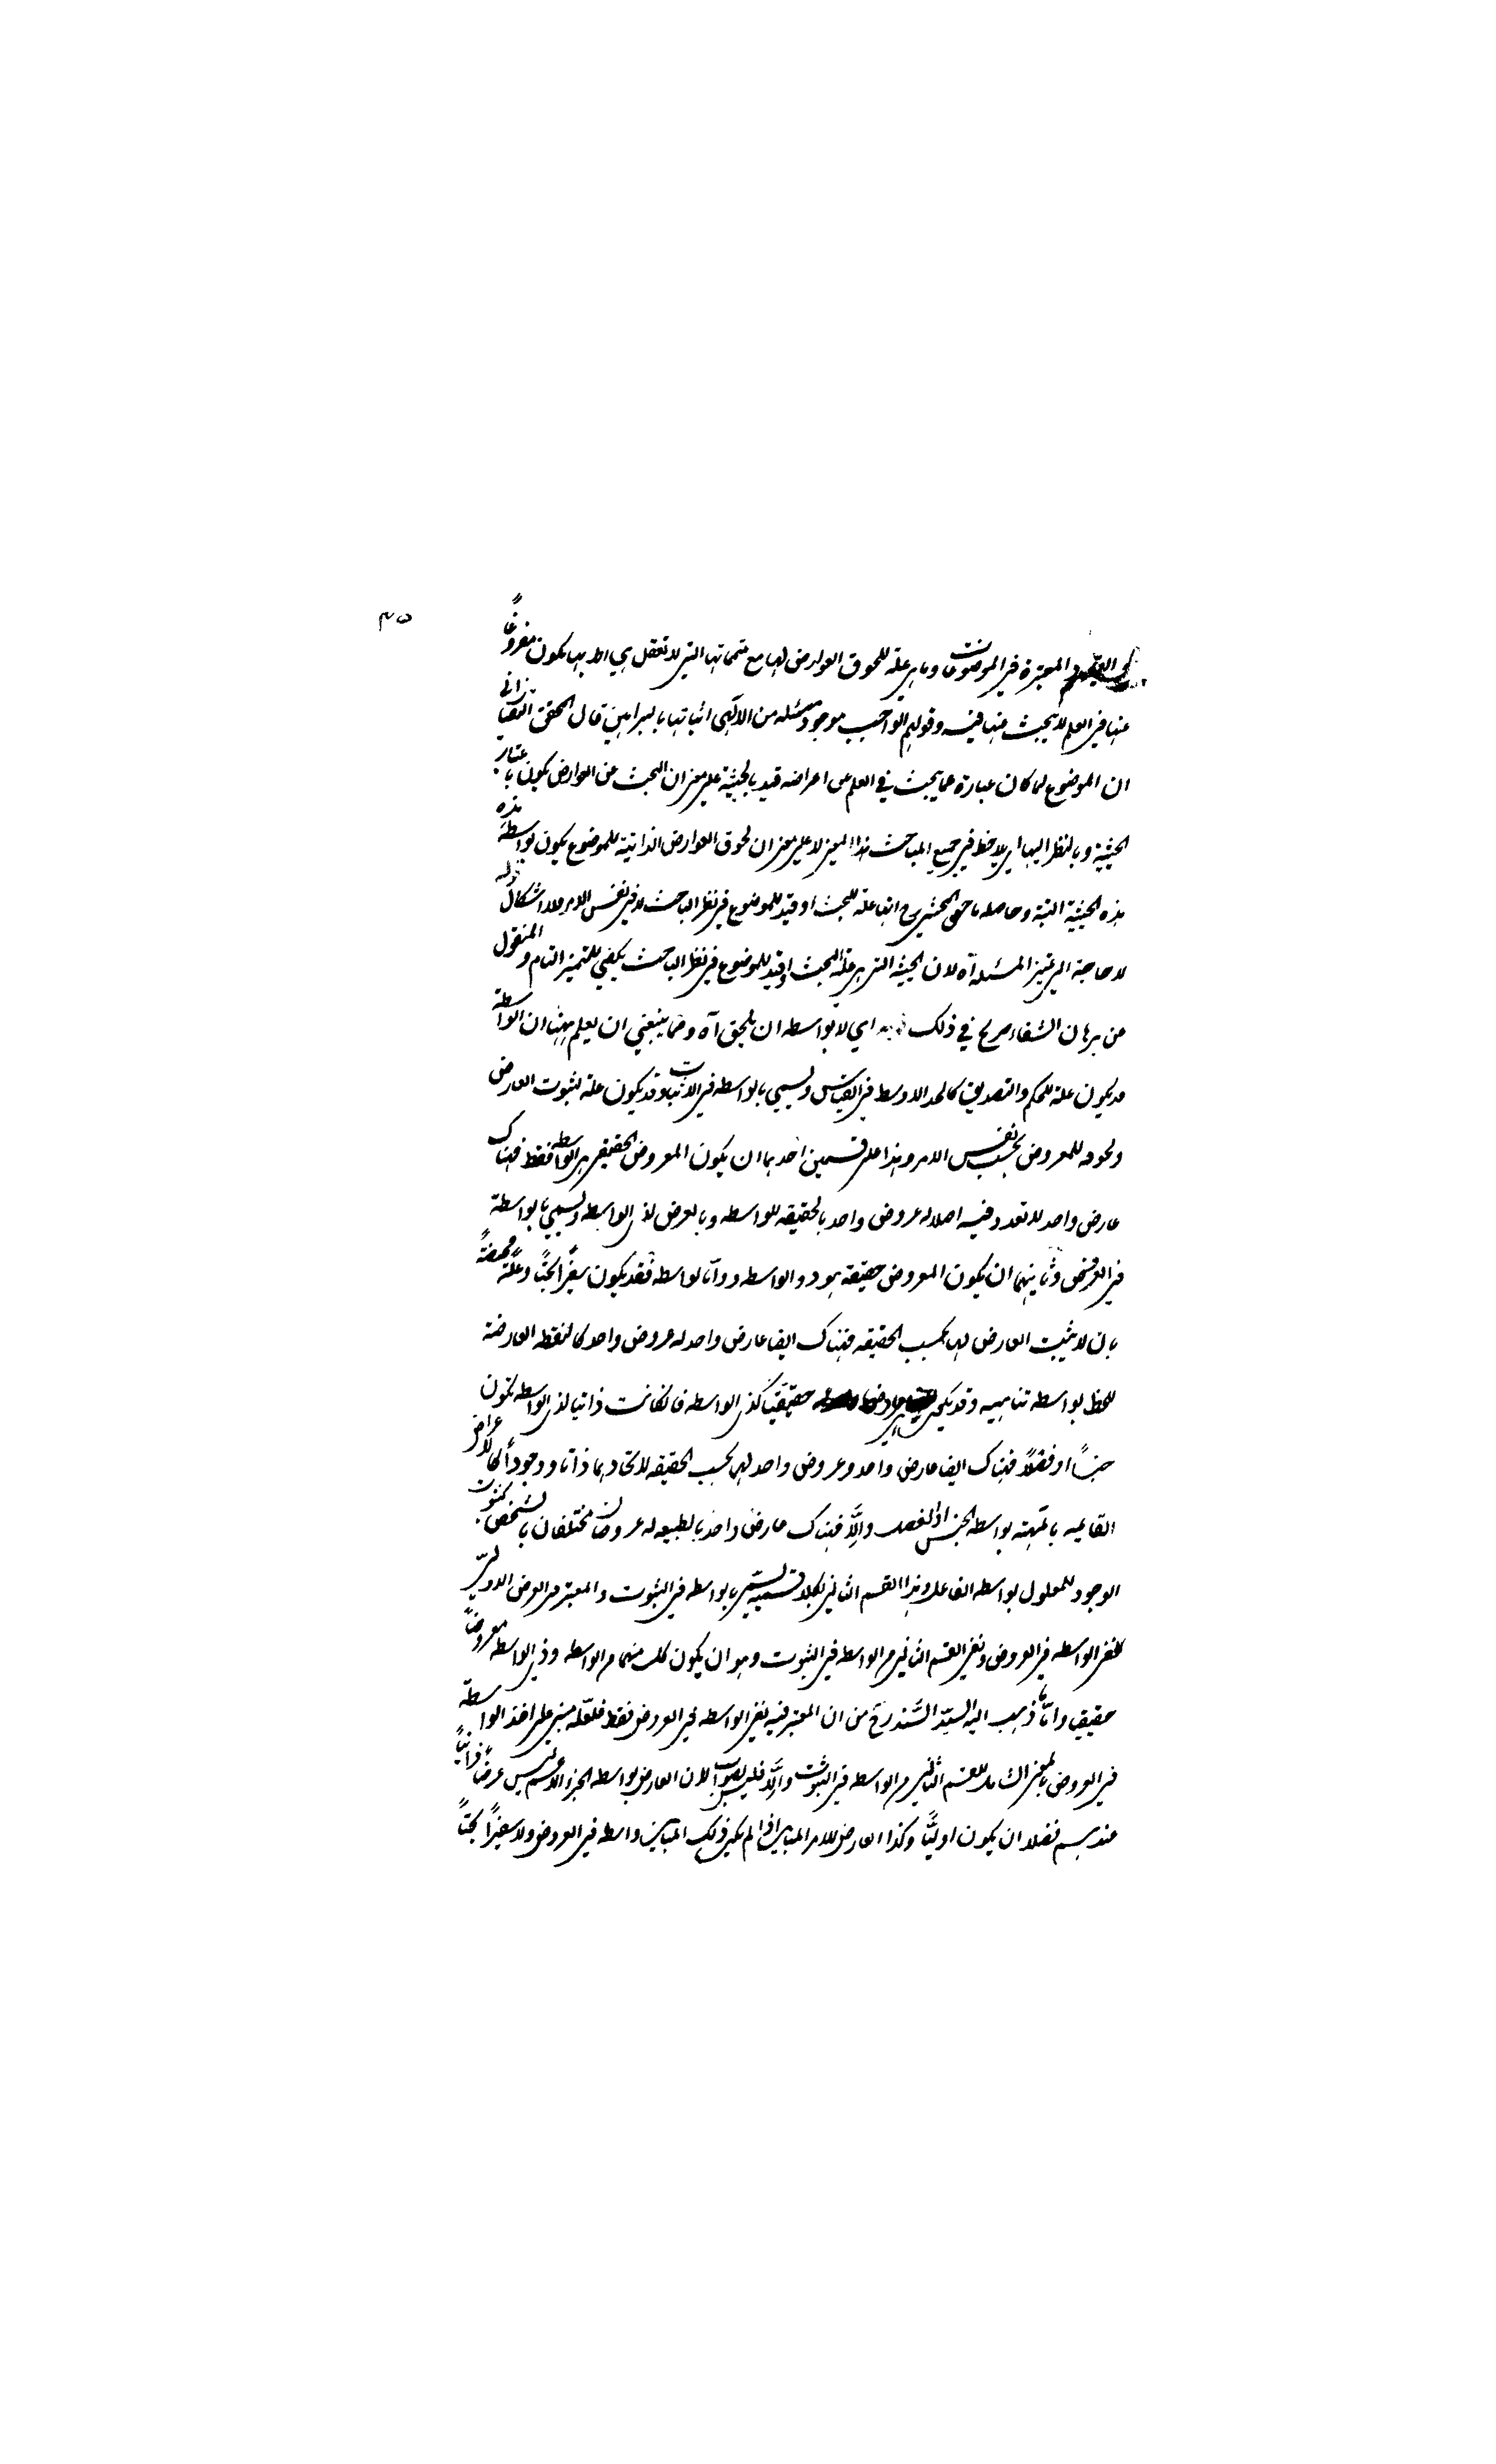 ۳۵
القيود المعتبرة في الموضوعات وما هي علة للحوق العوارض لها مع متمماتها التي لا تعقل هي الا بها يكون مفروغا
عنها في العلم لا يبحث عنها فيه وقولهم الواجب موجود مسئلة من الالهي اثباتها بالبراهين قال المحقق التفتازاني
ان الموضوع لما كان عبارة عما يبحث في العلم عن اعراضه قيد بالحيثية على معنى ان البحث عن العوارض يكون باعتبار
الحيثية وبالنظر اليها اي يلاحظ في جميع المباحث هذا المعنى لا على معنى ان لحوق العوارض الذاتية للموضوع يكون بواسطة هذه
هذه الحيثية البتة وحاصله ما حقق المحشي انها علة للبحث او قيد للموضوع في نظر الباحث لا في نفس الامر فلا اشكال قوله
لا حاجة الى تميز المسئلة آه لان الحيثية التي هي علة البحث او قيد للموضوع في نظر الباحث يكفي للتميز التام والمنقول
من برهان الشفاء صريح في ذلك اي لا بواسطه ان يلحق آه ومما ينبغي ان يعلم ههنا ان الواسطة
قد يكون علة للحكم والتصديق كالحد الاوسط في القياس ويسمى بالواسطه في الاثبات وقد يكون علة لثبوت العارض
ولحوقه للمعروض بحسب نفس الامر وهذا على قسمين احدهما ان يكون المعروض الحقيقي هو الواسطه فقط فهناك
عارض واحد لا تعدد فيه اصلا له عروض واحد بالحقيقه للواسطه وبالعرض لذي الواسطه ويسمى بالواسطة
في العروض وثانيهما ان يكون المعروض حقيقة هو ذو الواسطه واما الواسطه فقد يكون سفيرا بحتا وعلة محضة
بان لا يثبت العارض لها بحسب الحقيقه فهناك ايضا عارض واحد له عروض واحد كالنقطه العارضة
للخط بواسطه تناهيه وقد يكون حقيقيا كذي الواسطه فان كانت ذاتيا لذي الواسطه بكون
جنسا او فصلا فهناك ايضا عارض واحد وعروض واحد لها بحسب الحقيقه لاتحادهما ذاتا ووجودا كالاعراض
القائمه بالمهية بواسطه الجنس او الفصل والا فهناك عارض واحد بالطبيعه له عروضان مختلفان بالشخص كثبوت
الوجود للمعلول بواسطه الفاعل وهذا القسم الثاني بكلا قسميه يسمى بالواسطه في الثبوت والمعتبر في العرض الاولي
نفي الواسطه في العروض ونفي القسم الثاني من الواسطه في الثبوت وهو ان يكون كل منهما من الواسطه وذي الواسطه معروضا
حقيقيا واما ما ذهب اليه السيد السند رح من ان المعتبر فيه نفي الواسطه في العروض فقط فلعله مبني على اخذ الواسطة
في العروض بالمعنى الشامل للقسم الثاني من الواسطه في الثبوت والا فليس بصواب لان العارض بواسطه الجزء الاعم ليس عرضا ذاتيا
عندهم فضلا ان يكون اوليا وكذا العارض للامر المباين اذا لم يكن ذلك المباين واسطه في العروض ولا سفيرا بحتا